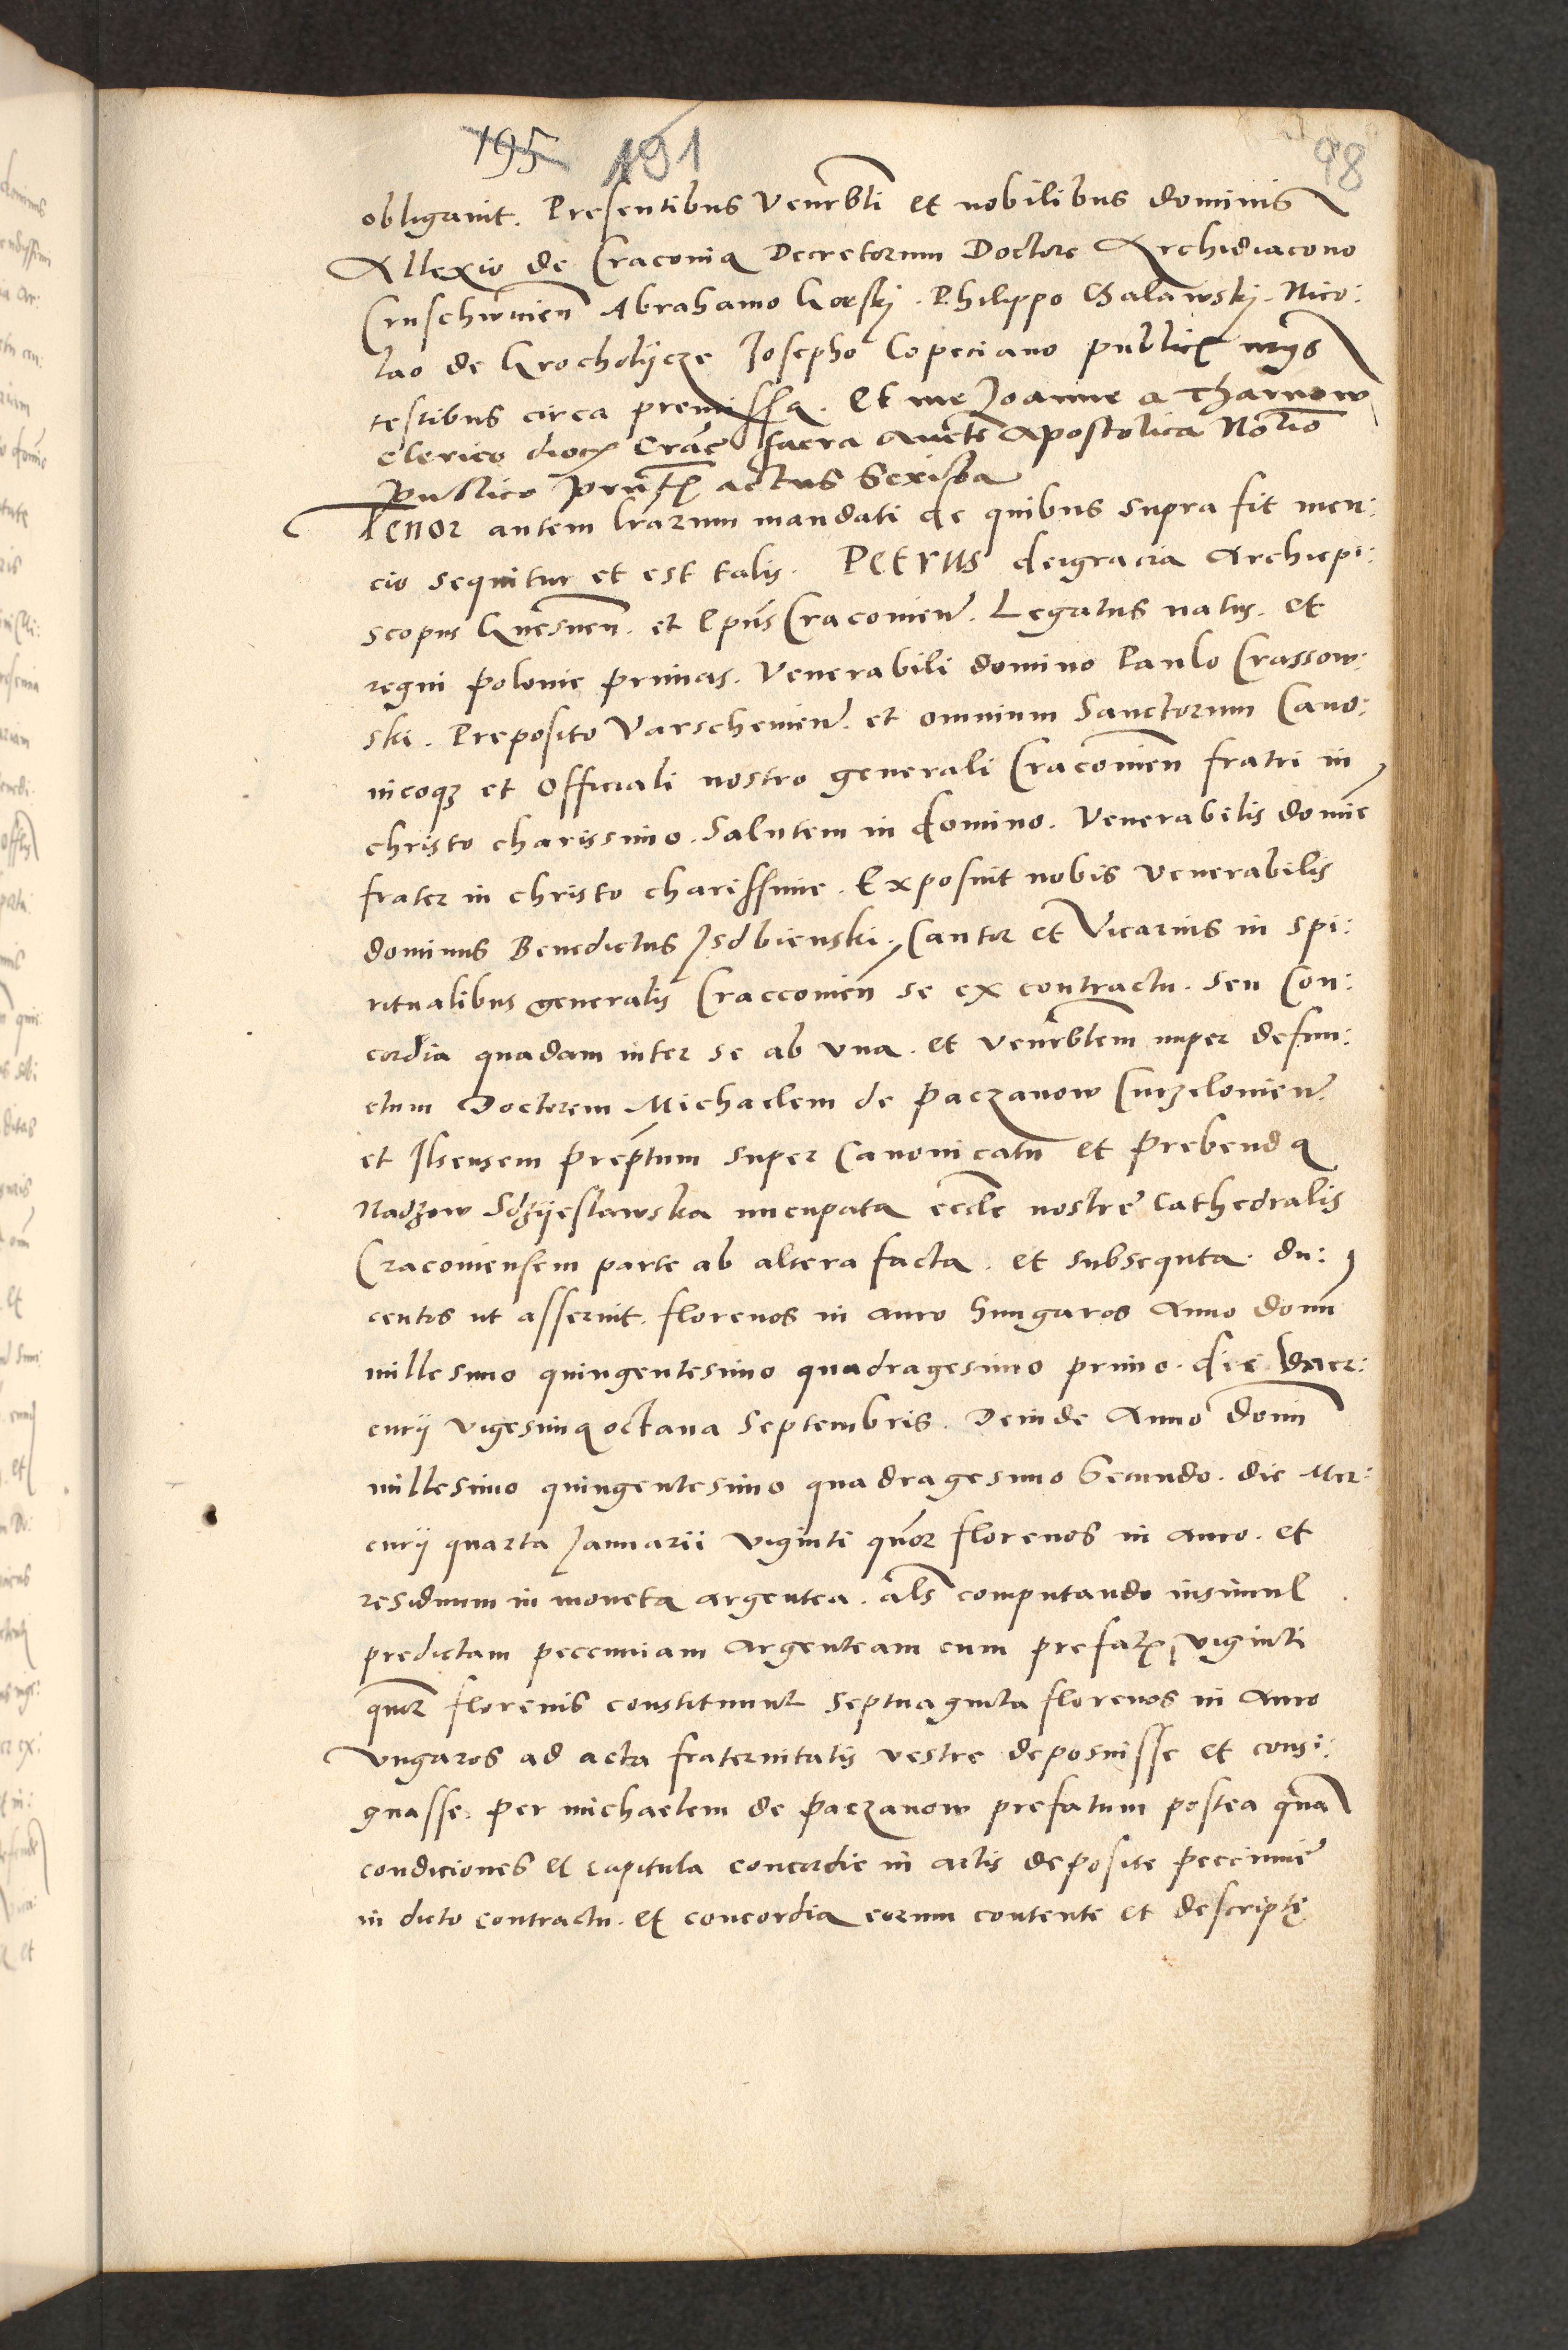 195 191 98
obligavit. Presentibus Venerbli et nobilibus dominis
Allexio de Cracovia Decretorum Doctore Archidiacono
Cruschwicien Abrahamo Gorskj. Philippo Chalawskj. Nico:
lao de Grocholijcze Josepho Copeciano publicis
testibus circa premissa. Et me Joanne a Tharnow
clerico dioc Crac sacra aucte Apostolica Notio
publico pntis actus Scriba
Tenor autem lrarum mandati de quibus supra fit men:
cio sequitur et est talis. PETRUS dei gracia Archiepi:
scopus Gnesnen. et Epus Cracovien. Legatus natus. et
regni polonie primas. Venerabili domino Paulo Crassow:
ski. Preposito Varschevien. et omnium Sanctorum Cano:
nicoq; et Officiali nostro generali Cracovien fratri in
christo charissimo. Salutem in domino. Venerabilis domie
frater in christo charissime. Exposuit nobis venerabilis
dominus Benedictus Jsdbienski. Cantor et Vicarius in spi:
ritualibus generalis Craccovien se ex contractu. seu Con:
cordia quadam inter se ab una. et venerblem nuper defun:
ctum Doctorem Michaelem de Paczanow Curzelovien.
et Ilsensem preptum super Canonicatu et Prebenda
Nadzow Sdzijeslawska nncupata eccle nostre Cathedralis
Cracoviensem parte ab altera facta. et subsequta. du:
centos ut asseruit. florenos in auro hungaros Anno domi
millesimo quingentesimo quadragesimo primo. die Mer:
curij vigesima octava Septembris. Deinde Anno domi
millesimo quingentesimo quadragesimo Secundo. die Mer:
curij quarta Januarii viginti quor florenos in auro. et
residuum in moneta argentea. als computando insimul
predictam peccuniam argenteam cum prefatis viginti
quor florenis constituunt septuaginta florenos in auro
vngaros ad acta fraternitatis vestre deposuisse et consi:
gnasse. per michaelem de Paczanow prefatum postea qua
condiciones et capitula concordie in actis deposite peccunie
in dicto contractu. et concordia eorum contente et descripte